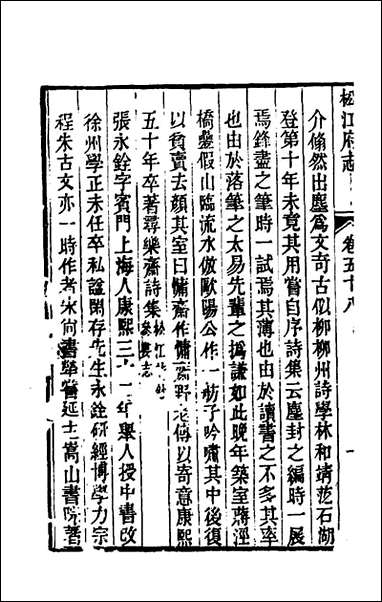 松江府志
卷五十八
介翛然出塵爲文奇古似柳柳州詩學林和靖范石湖
登第十年未竟其用嘗自序詩集云塵封之編時一展
焉鋒盡之筆時一試焉其薄也由於讀書之不多其率
也由於落筆之太易先輩之撝謙如此晚年築室蔣涇
橋壘假山臨流水倣歐陽公作一舫子吟嘯其中後復
以貧賣去顏其室曰傭齋作傭齋野老傳以寄意康熙
五十年卒著尋樂齋詩集
張永銓字賓門上海人康熙三十二年舉人授中書改
徐州學正未任卒私諡閑存先生永銓研經博學力宗
程朱古文亦一時作者宋尚書犖嘗延主嵩山書院著